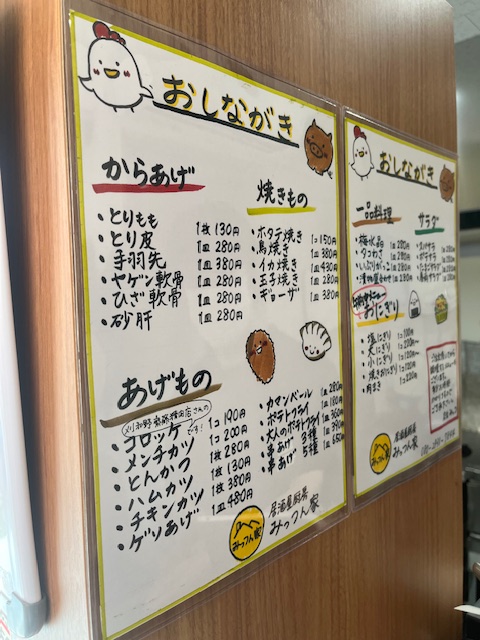 おしながき
からあげ
・とりもも 1枚 130円
・とり皮 1皿 280円
・手羽先 1皿 380円
・ヤゲン軟骨 1皿 280円
・ひざ軟骨 1皿 280円
・砂肝 1皿 280円
焼きもの
・ホタテ焼き 1コ 150円
・鳥焼き 1皿 380円
・イカ焼き 1皿 430円
・玉子焼き 1皿 280円
・ギョーザ 1皿 380円
あげもの
刈和野 斎藤精肉店さんの
です!
・コロッケ 1コ 190円
・メンチカツ 1コ 200円
・とんかつ 1枚 280円
・ハムカツ 1枚 130円
・チキンカツ 1枚 380円
・ゲソあげ 1皿 480円
・カマンベール 1皿 280円
・ポテトフライ 1皿 180円
・大人のポテトフライ 1皿 360円
・串あげ 3種 390円
・串あげ 5種 650円
みっつん家
居酒屋厨房
みっつん家
おしながき
一品料理
・梅水晶 1皿 280円
・タコわさ 1皿 280円
・いぶりがっこ 1皿 280円
サラダ
おにぎり
・塩にぎり 1コ 100円
・大にぎり
・小にぎり
・焼きおにぎり
みっつん家
居酒屋厨房
みっつん家